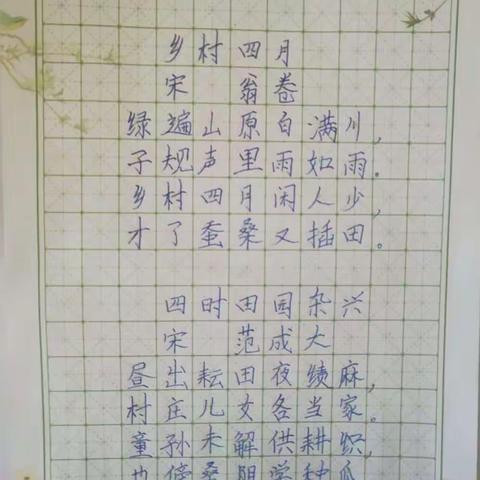 乡村四月
宋 翁卷
绿遍山原白满川,
子规声里雨如雨.
乡村四月闲人少,
才了蚕桑又插田。
四时田园杂兴
宋 范成大
昼出耘田夜绩麻,
村庄儿女各当家。
童孙未解供耕织,
也傍桑阴学种瓜